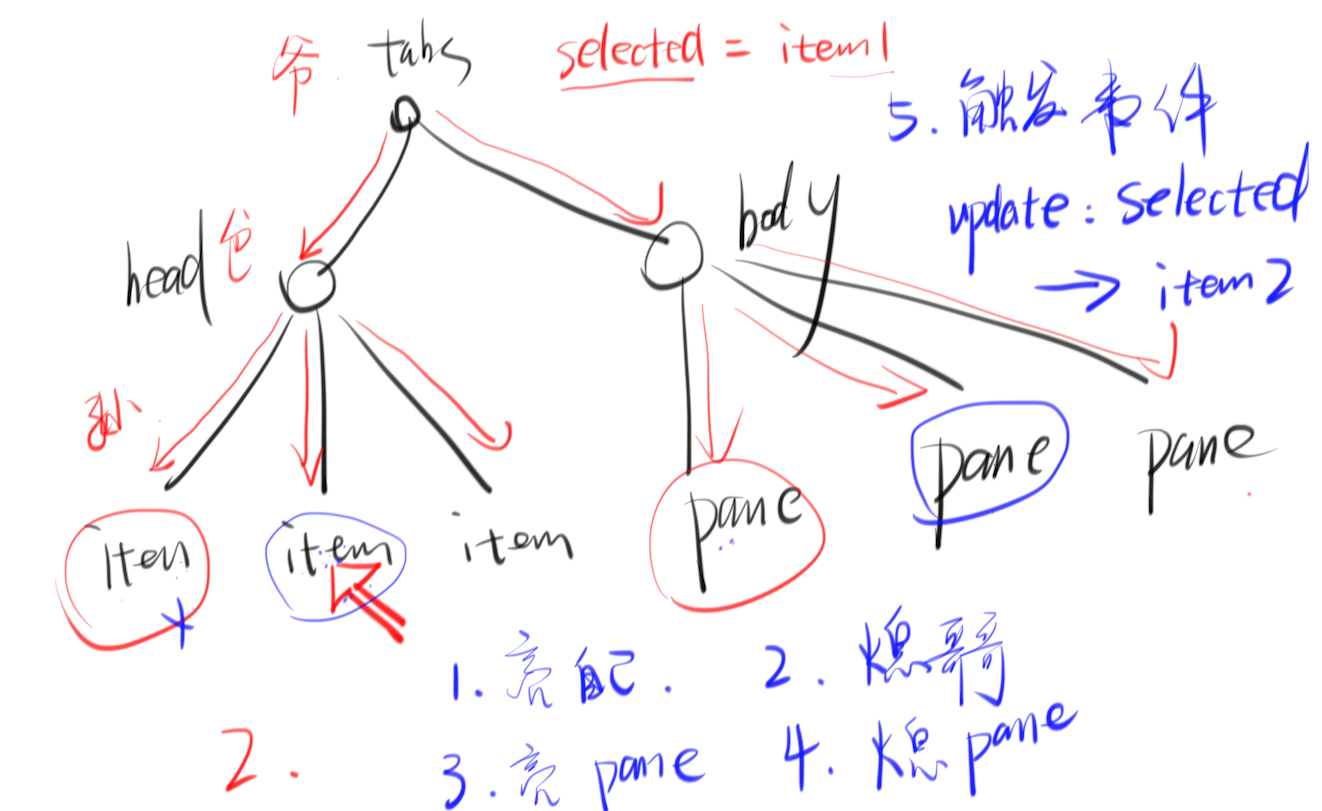 爷 tabs selected = item1
5. 触发事件
update: selected
→ item2
head 爸 body
孙
item item item pane pane pane
1. 亮自己. 2. 熄哥哥
2. 3. 亮 pane 4. 熄 pane